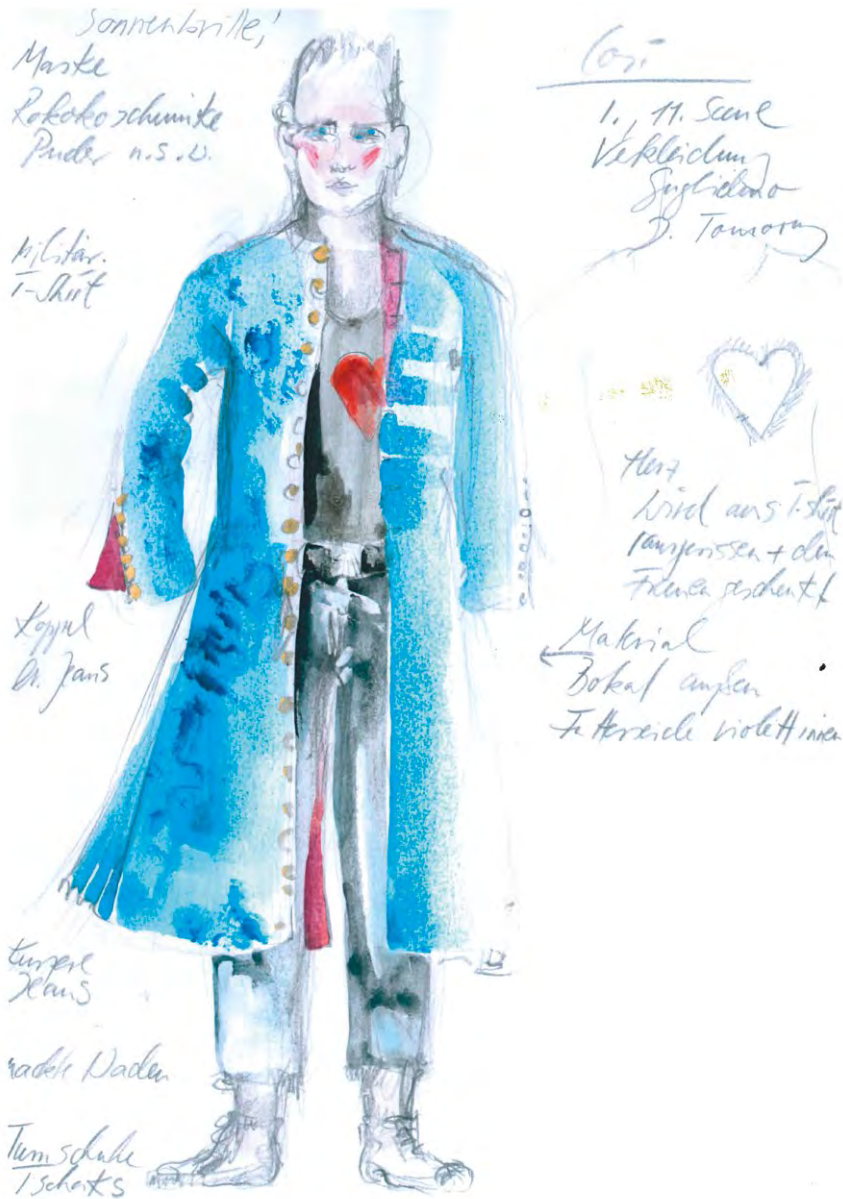 Sonnenbrille!
Maske
Rokokoschminke
Puder u.s.w.
Militär.
T-Shirt
Koppel
Jeans
Kürzere
Jeans
nackte Waden
Turnschuhe
Cosi
1., 11. Scene
Verkleidung
Guglielmo
D. Tomory
Herz
wird aus T-Shirt
rausgerissen + den
Frauen geschenkt
Material
außen
Futterseide violett innen